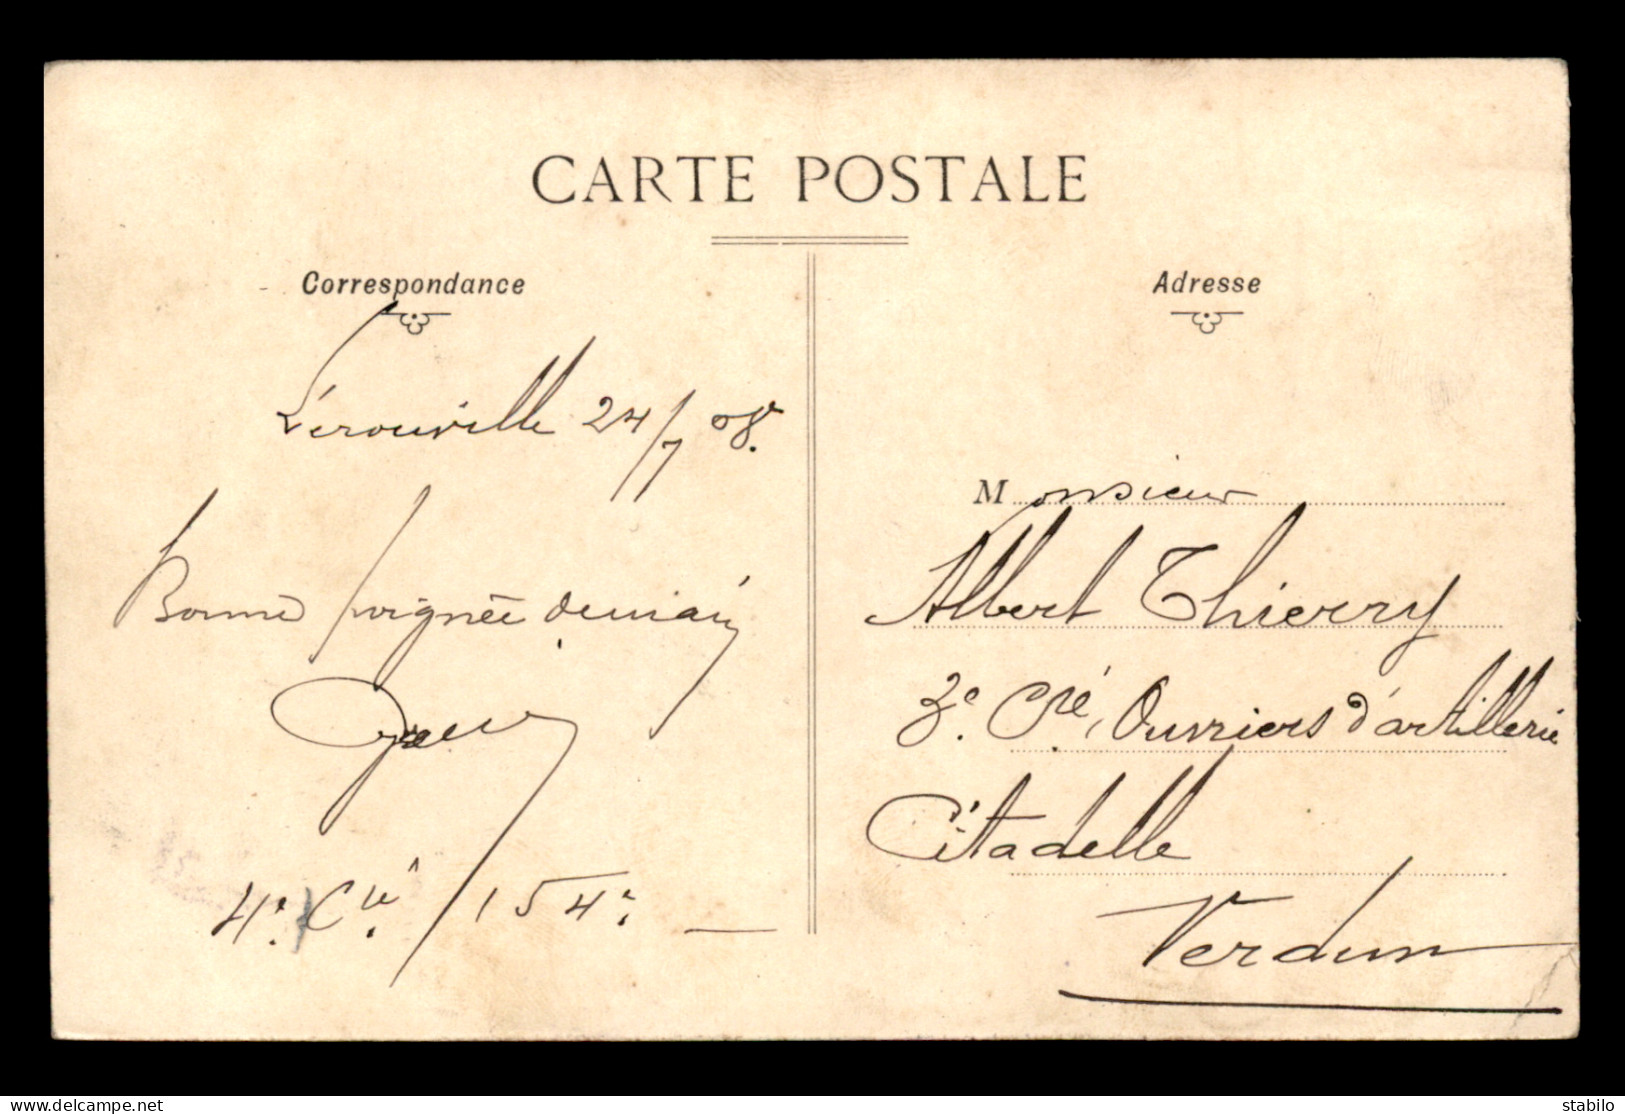 CARTE POSTALE
Correspondance
Lérouville 24/7 08.
Bonne poignée de main
4e. Cie. 154e.
Adresse
Monsieur
Albert Thierry
3e. Cie, Ouvriers d'artillerie
Citadelle
Verdun
www.delcampe.net
stabilo